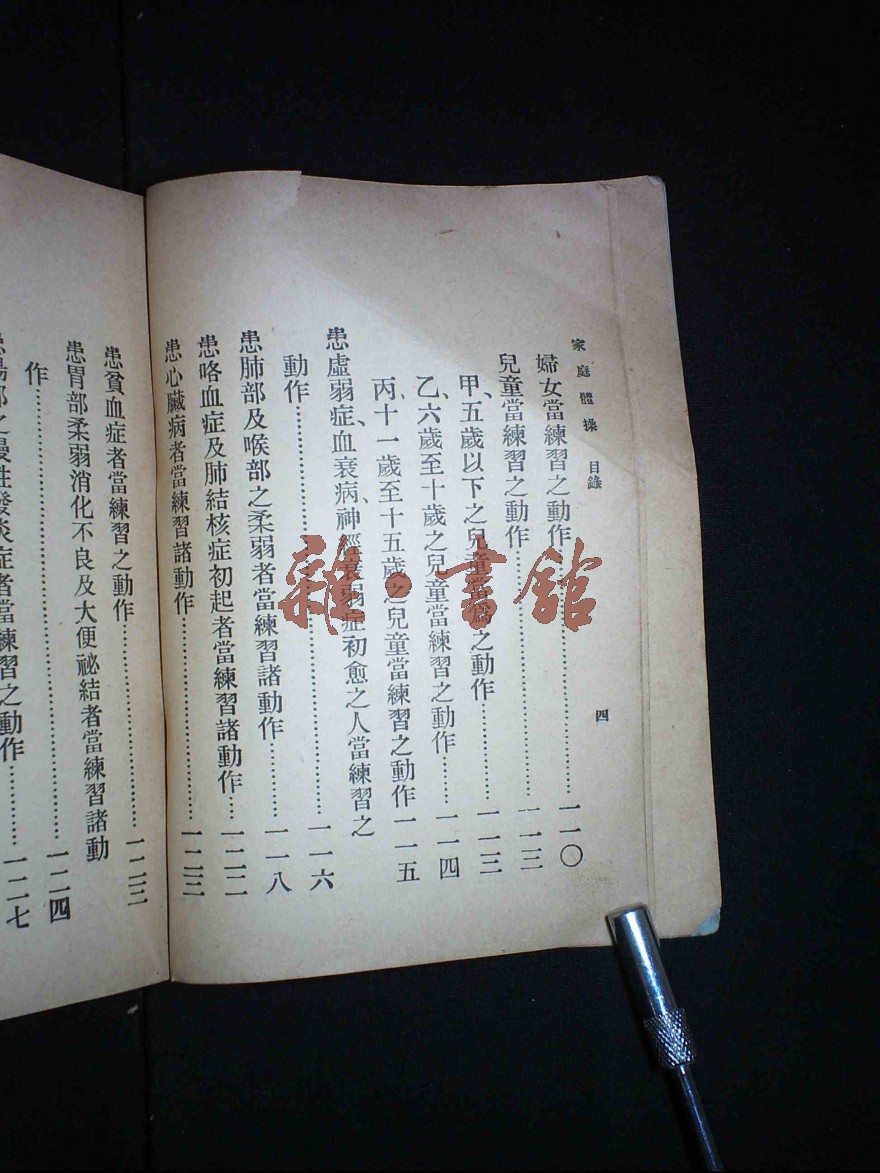 家庭體操 目錄 四
婦女當練習之動作……………………一一〇
兒童當練習之動作……………………一一三
甲、五歲以下之兒童當爲之動作………一一三
乙、六歲至十歲之兒童當練習之動作……一一四
丙、十一歲至十五歲之兒童當練習之動作 一一五
患虛弱症、血衰病、神經衰弱症初愈之人當練習之
動作……………………………………一一六
患肺部及喉部之柔弱者當練習諸動作………一一八
患咯血症及肺結核症初起者當練習諸動作……一二二
患心臟病者當練習諸動作……………………一二三
患貧血症者當練習之動作……………………一二三
患胃部柔弱消化不良及大便祕結者當練習諸動
作……………………………………一二四
患腸部之慢性發炎症者當練習之動作………一二七
雜·書館